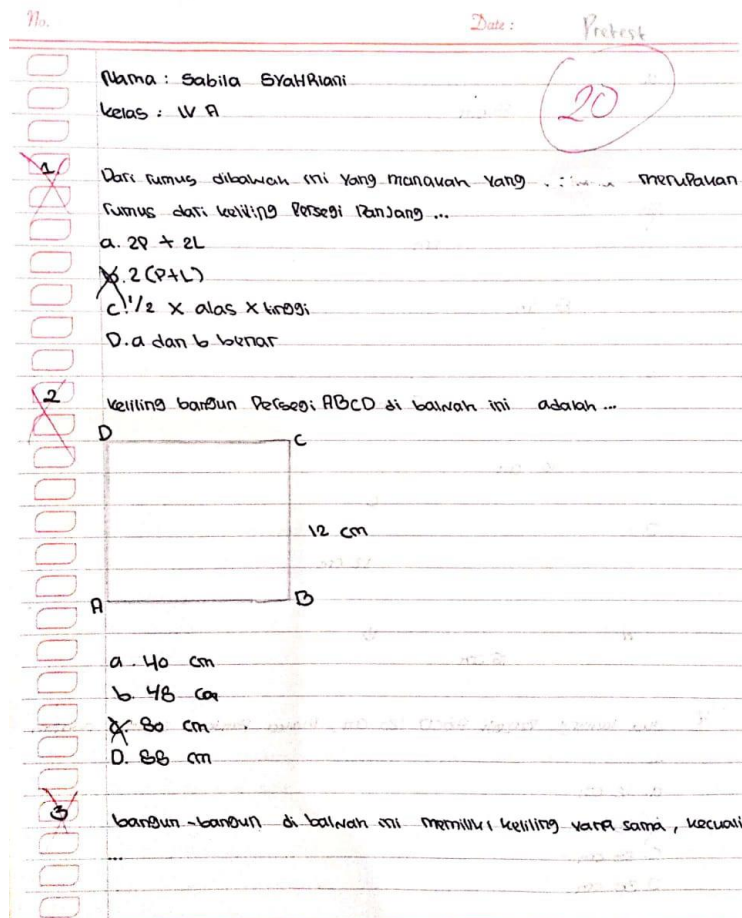 No.
Date :
Pretest
Nama : Sabila SYaHRiani
kelas : IV A
20
1.
Dari rumus dibawah ini yang manakah yang merupakan
rumus dari keliling Persegi Panjang ...
a. 2P + 2L
b. 2 (P+L)
c. 1/2 x alas x tinggi
D. a dan b benar
2
keliling bangun Persegi ABCD di bawah ini adalah ...
D
C
12 cm
A
B
a. 40 cm
b. 48 cm
c. 80 cm
D. 88 cm
3
bangun-bangun di bawah ini memiliki keliling yang sama, kecuali
...